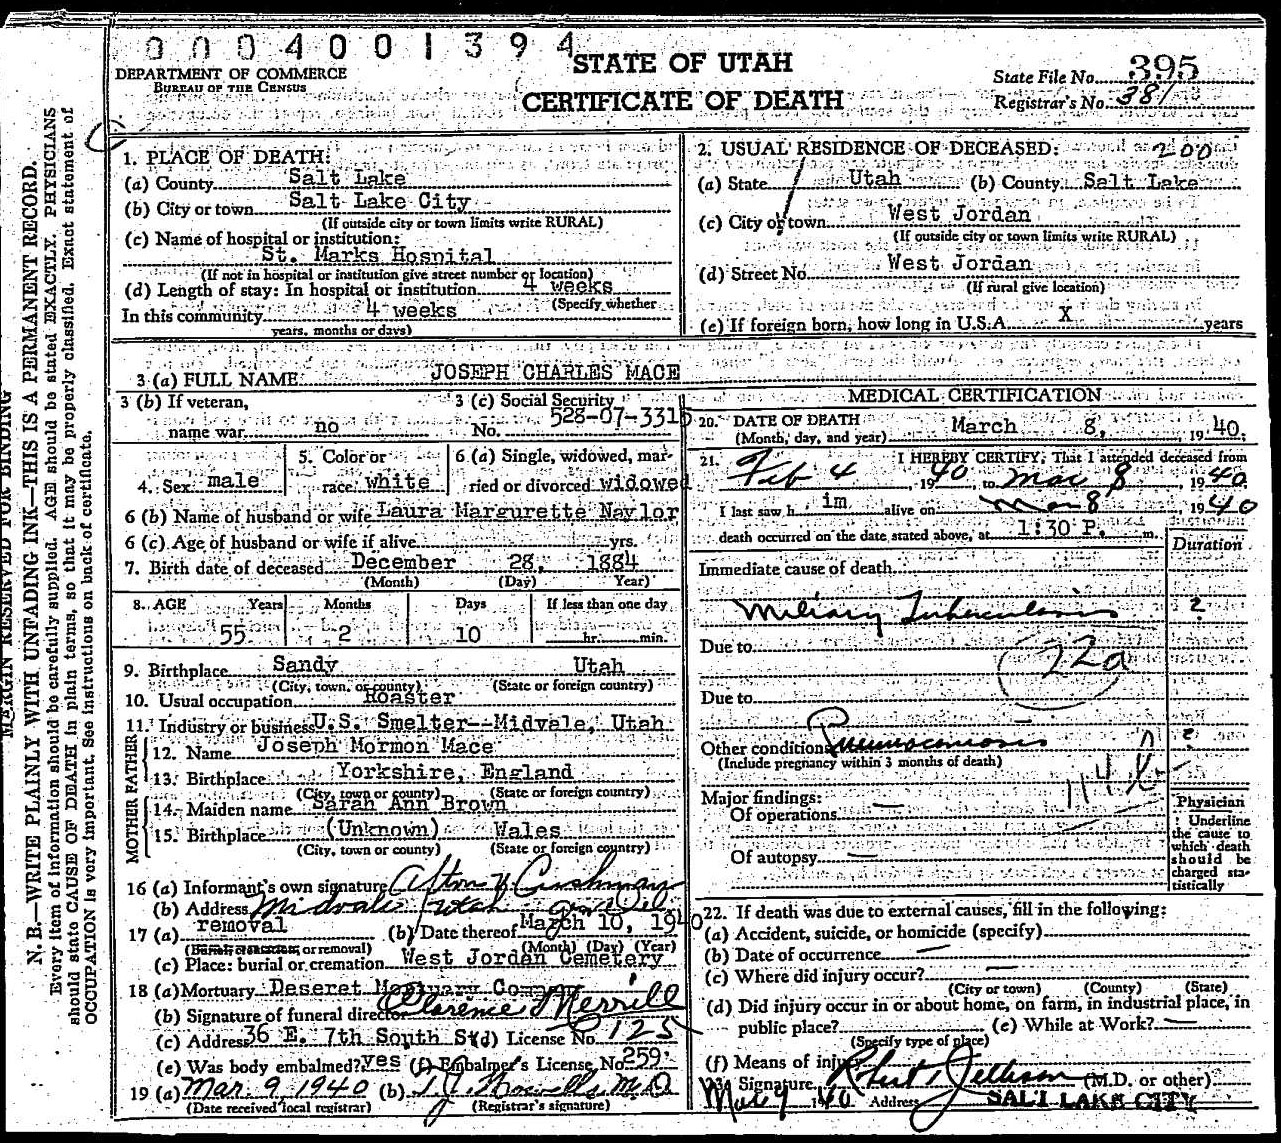 0004001394
STATE OF UTAH
CERTIFICATE OF DEATH
DEPARTMENT OF COMMERCE
BUREAU OF THE CENSUS
State File No. 395
Registrar's No. 381
MARGIN RESERVED FOR BINDING
N. B.—WRITE PLAINLY WITH UNFADING INK—THIS IS A PERMANENT RECORD.
Every item of information should be carefully supplied. AGE should be stated EXACTLY. PHYSICIANS
should state CAUSE OF DEATH in plain terms, so that it may be properly classified. Exact statement of
OCCUPATION is very important. See instructions on back of certificate.
1. PLACE OF DEATH:
(a) County Salt Lake
(b) City or town Salt Lake City
(If outside city or town limits write RURAL)
(c) Name of hospital or institution:
St. Marks Hospital
(If not in hospital or institution give street number or location)
(d) Length of stay: In hospital or institution 4 weeks
(Specify whether
In this community 4 weeks
years, months or days)
2. USUAL RESIDENCE OF DECEASED: 200
(a) State Utah (b) County Salt Lake
(c) City or town West Jordan
(If outside city or town limits write RURAL)
(d) Street No. West Jordan
(If rural give location)
(e) If foreign born, how long in U.S.A. X years
3 (a) FULL NAME JOSEPH CHARLES MACE
3 (b) If veteran,
name war no
3 (c) Social Security
No. 528-07-3315
4. Sex male
5. Color or
race white
6 (a) Single, widowed, mar-
ried or divorced widowed
6 (b) Name of husband or wife Laura Margurette Naylor
6 (c) Age of husband or wife if alive yrs.
7. Birth date of deceased December 28, 1884
(Month) (Day) Year)
8. AGE Years Months Days If less than one day
55 2 10 hr. min.
9. Birthplace Sandy Utah
(City, town, or county) (State or foreign country)
10. Usual occupation Roaster
11. Industry or business U.S. Smelter--Midvale, Utah
FATHER
12. Name Joseph Mormon Mace
13. Birthplace Yorkshire, England
(City, town or county) (State or foreign country)
MOTHER
14. Maiden name Sarah Ann Brown
15. Birthplace (Unknown) Wales
(City, town or county) (State or foreign country)
16 (a) Informant's own signature Alton Cushman
(b) Address Midvale Utah
17 (a) removal (b) Date thereof March 10, 1940
(Burial cremation, or removal) (Month) (Day) (Year)
(c) Place: burial or cremation West Jordan Cemetery
18 (a) Mortuary Deseret Mortuary Company
(b) Signature of funeral director Clarence Merrill
(c) Address 36 E. 7th South St (d) License No. 125
(e) Was body embalmed? yes (f) Embalmer's License No. 259
19 (a) Mar. 9, 1940 (b) M.D.
(Date received local registrar) (Registrar's signature)
MEDICAL CERTIFICATION
20. DATE OF DEATH
(Month, day, and year) March 8, 1940.
21. I HEREBY CERTIFY, That I attended deceased from
Feb 4, 1940, to Mar 8, 1940
I last saw him alive on Mar 8, 1940
death occurred on the date stated above, at 1:30 P. m.
Duration
Immediate cause of death
Miliary Tuberculosis ?
Due to
22a
Due to
Other conditions Pneumoconiosis ?
(Include pregnancy within 3 months of death)
114b
Major findings:
Of operations —
Of autopsy —
Physician
Underline
the cause to
which death
should be
charged sta-
tistically
22. If death was due to external causes, fill in the following:
(a) Accident, suicide, or homicide (specify)
(b) Date of occurrence —
(c) Where did injury occur? —
(City or town) (County) (State)
(d) Did injury occur in or about home, on farm, in industrial place, in
public place? (e) While at Work? —
(Specify type of place)
(f) Means of injury
23. Signature Robert Jellison (M.D. or other)
Mar 9 1940 Address SALT LAKE CITY